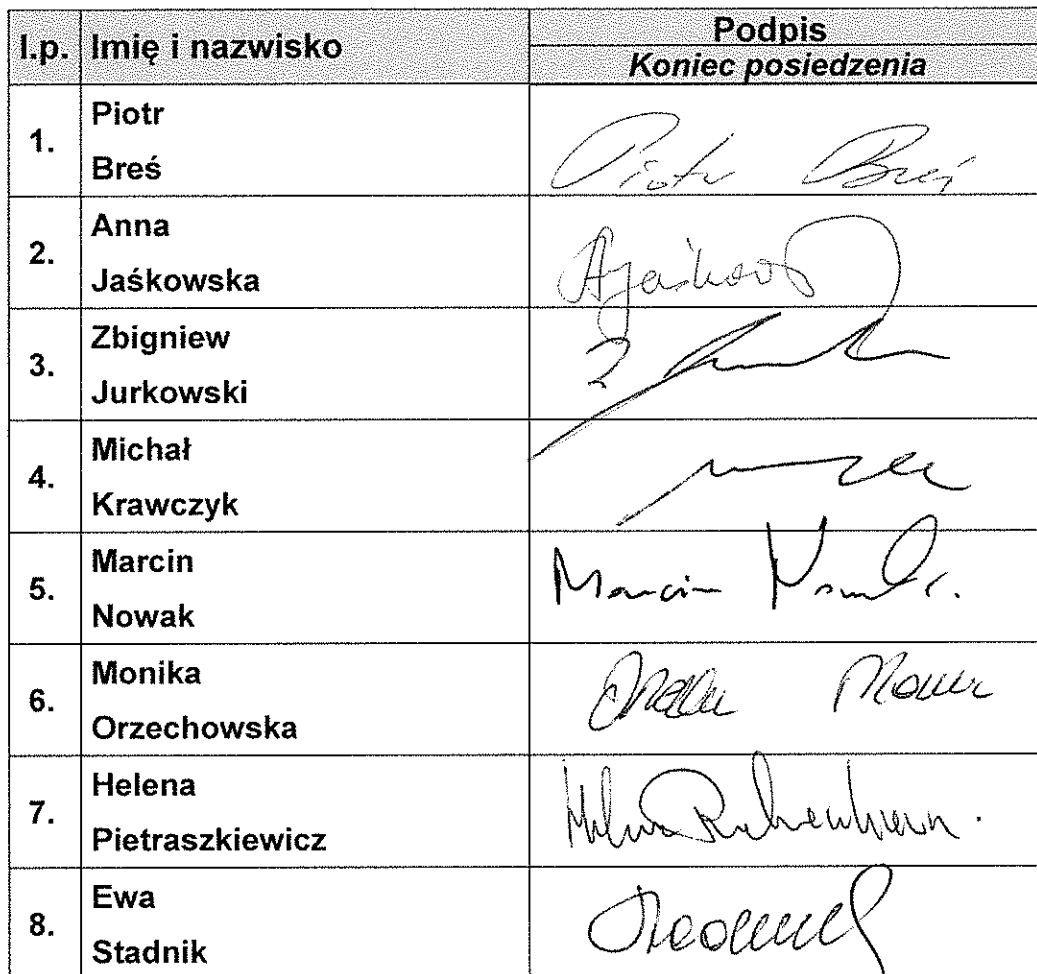 l.p. Imię i nazwisko Podpis
Koniec posiedzenia
1. Piotr
Breś
Piotr Breś
2. Anna
Jaśkowska
3. Zbigniew
Jurkowski
4. Michał
Krawczyk
5. Marcin
Nowak
Marcin
6. Monika
Orzechowska
7. Helena
Pietraszkiewicz
8. Ewa
Stadnik